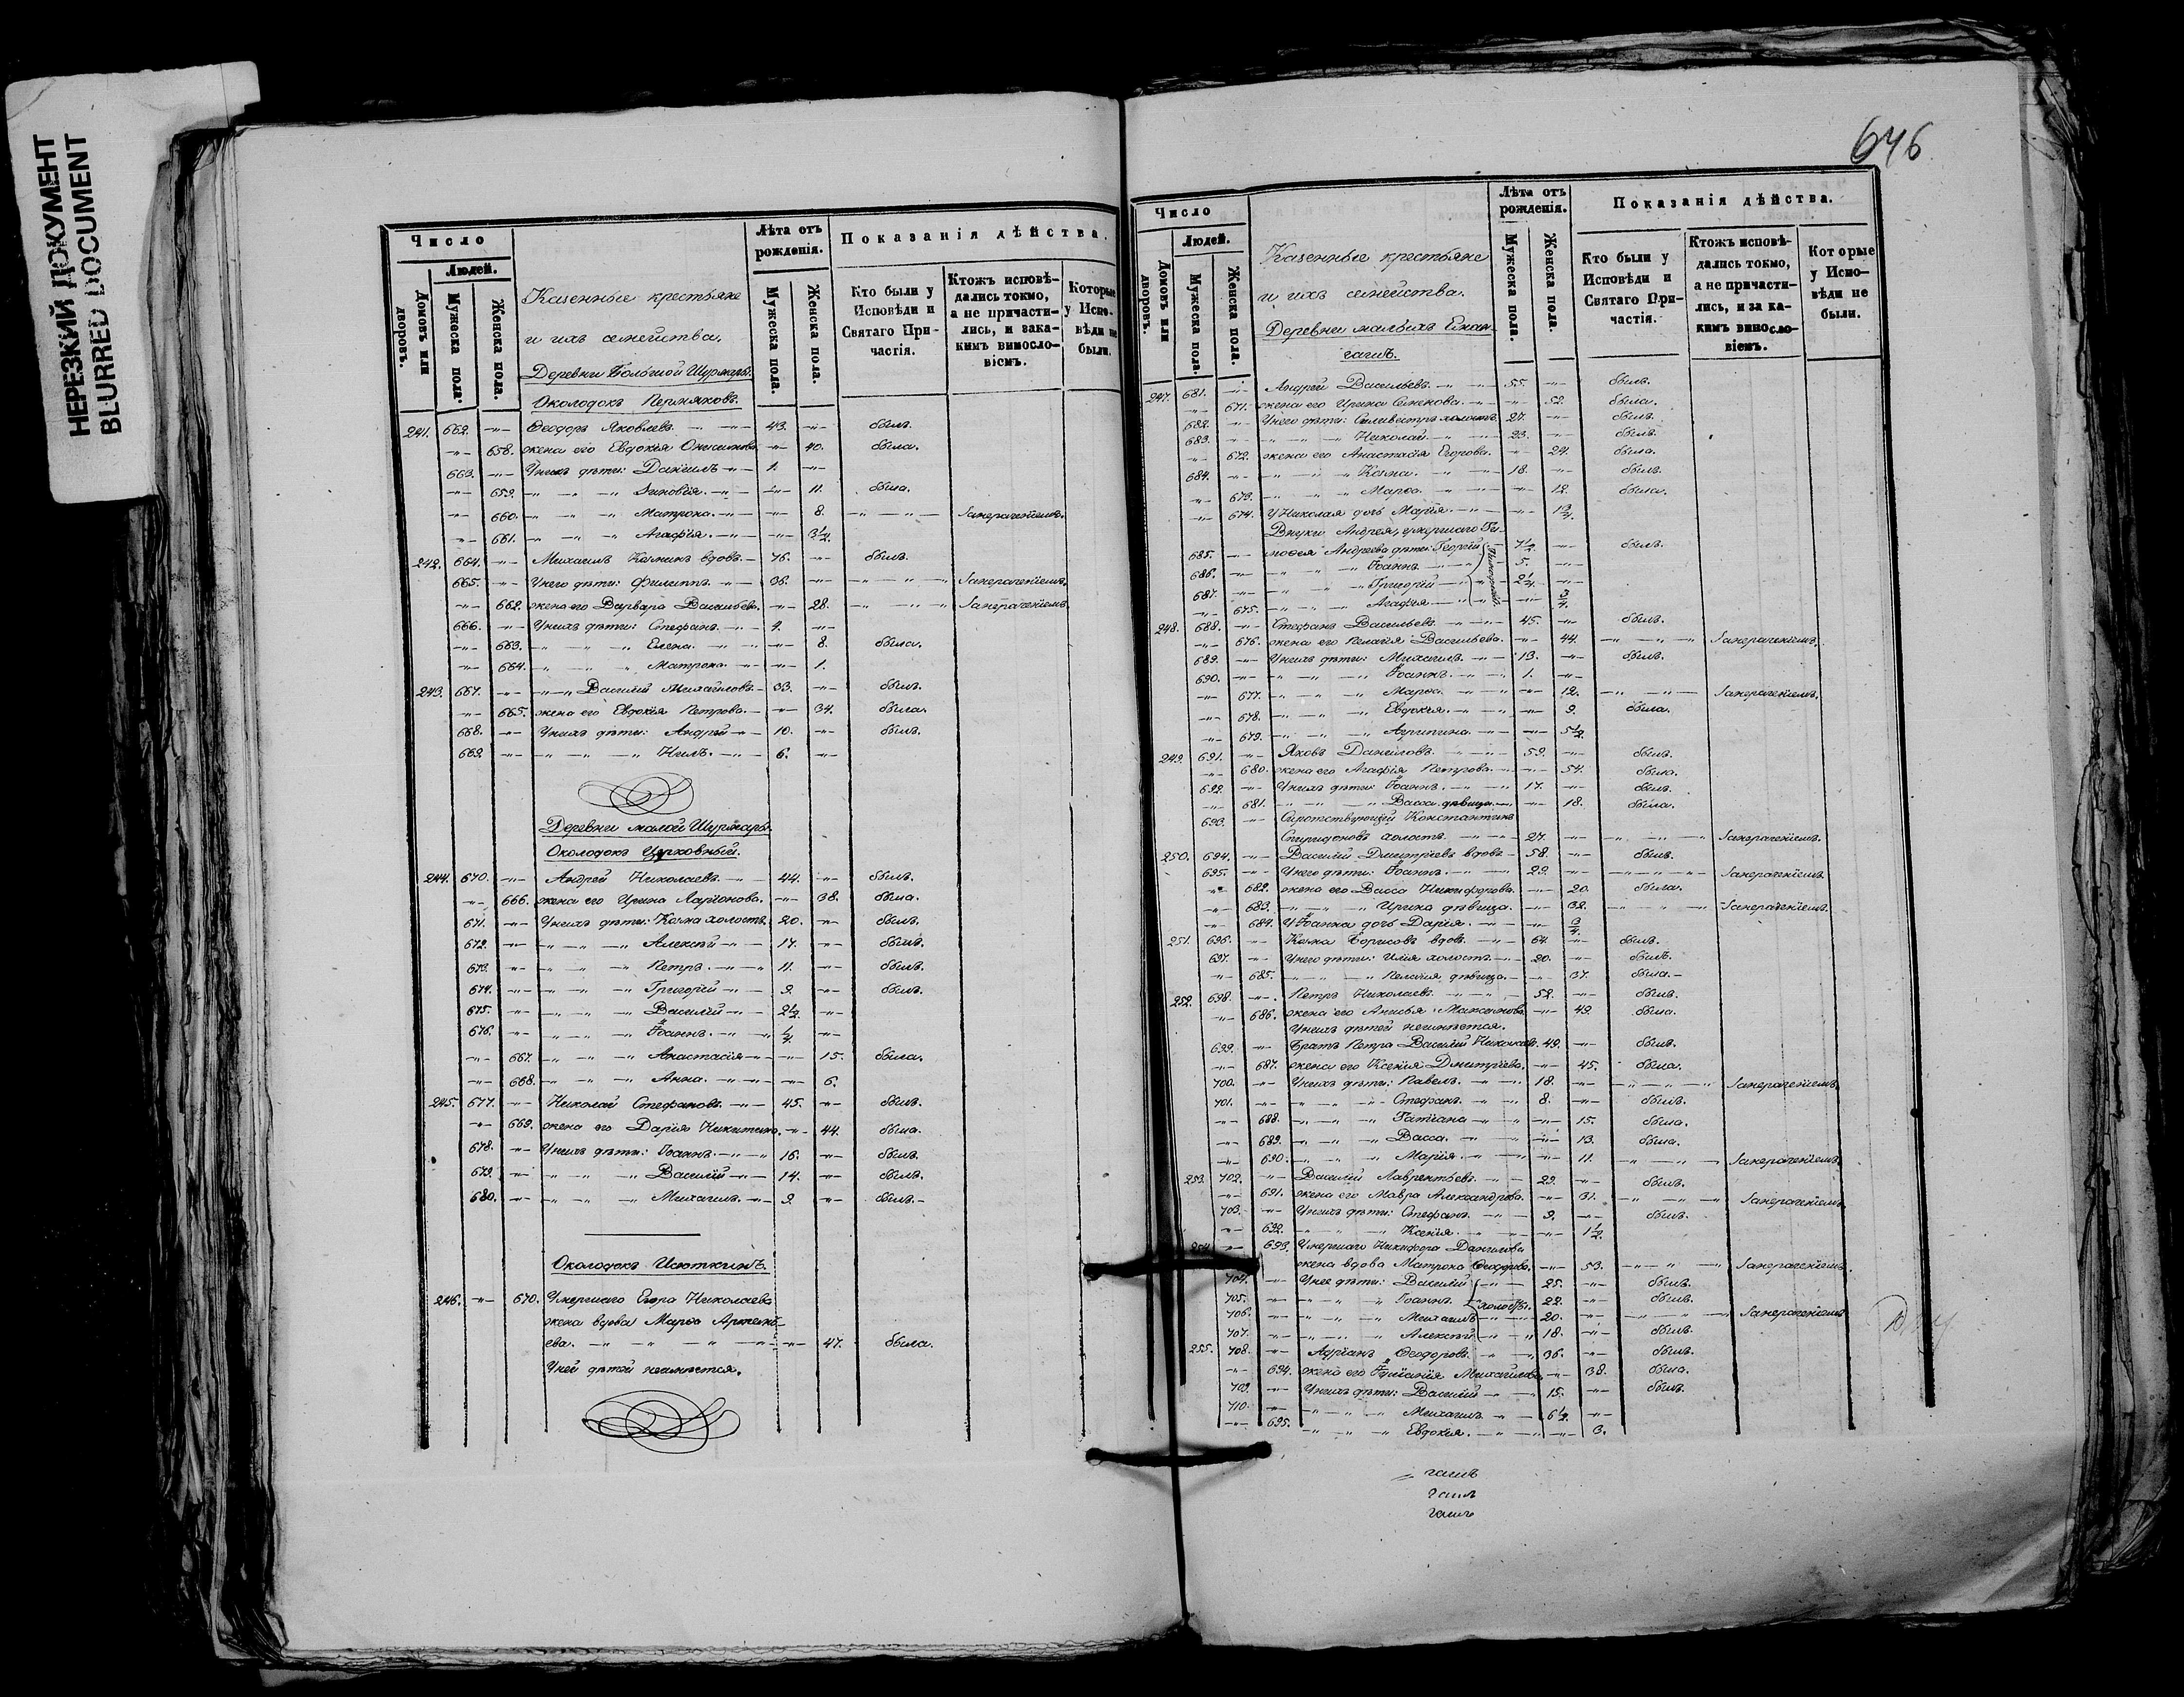 НЕРЕЗКИЙ ДОКУМЕНТ
BLURRED DOCUMENT
Число
Людей.
Домовъ или дворовъ.
Мужеска пола.
Женска пола.
Казенные крестьяне
и ихъ семейства.
Деревни Большой Шурмары.
Околодокъ Пермяковъ.
Лѣта отъ рожденія.
Мужеска пола.
Женска пола.
Показанія дѣйства.
Кто были у Исповѣди и Святаго Причастія.
Ктожъ исповѣдались токмо, а не причастились, и закакимъ винословіемъ.
Которые у Исповѣди не были.
241. 662. -"- Ѳеодоръ Яковлевъ. 43. -"- былъ.
-"- 658. жена его Евдокія Онисимова -"- 40. была.
663. -"- У нихъ дѣти: Даніилъ 1. -"-
-"- 659. Зиновія. -"- 11. была.
-"- 660. Матрона. -"- 8. -"- Занерачéніемъ.
-"- 661. Агафія. -"- 3¼
242. 664. -"- Михаилъ Козминъ вдовъ. 76. -"- былъ.
665. -"- У него дѣти: Филиппъ. 36. -"- -"- Занераченіемъ.
-"- 662. жена его Варвара Васильева. -"- 28. -"- Занераченіемъ.
666. -"- У нихъ дѣти: Стефанъ. 4. -"-
-"- 663. Елена. -"- 8. была.
-"- 664. Матрона. -"- 1.
243. 667. -"- Василій Михайловъ. 33. -"- былъ.
-"- 665. жена его Евдокія Петрова. -"- 34. была.
668. -"- У нихъ дѣти: Андрей 10. -"- былъ.
669. -"- Нилъ. 6. -"-
Деревни малой Шурмары.
Околодокъ Церковный.
244. 670. -"- Андрей Николаевъ. 44. -"- былъ.
-"- 666. жена его Ирина Ларіонова. -"- 38. была.
671. -"- У нихъ дѣти: Козма холостъ. 20. -"- былъ.
672. -"- Алексѣй 17. -"- былъ.
673. -"- Петръ. 11. -"- былъ.
674. -"- Григорій 9. -"- былъ.
675. -"- Василій 2½. -"-
676. -"- Іоаннъ. ¼ -"-
-"- 667. Анастасія -"- 15. была.
-"- 668. Анна. -"- 6.
245. 677. -"- Николай Стефановъ. 45. -"- былъ.
-"- 669. жена его Дарія Никитина. -"- 44. была.
678. -"- У нихъ дѣти: Іоаннъ. 16. -"- былъ.
679. -"- Василій 14. -"- былъ.
680. -"- Михаилъ. 9. -"- былъ.
Околодокъ
246. -"- 670. Умершаго Егора Николаева
жена вдова Марѳа
ева. -"- 47. была.
У ней дѣтей неимѣется.
646
Число
Людей.
Домовъ или дворовъ.
Мужеска пола.
Женска пола.
Казенные крестьяне
и ихъ семейства.
Деревни малыхъ
Лѣта отъ рожденія.
Мужеска пола.
Женска пола.
Показанія дѣйства.
Кто были у Исповѣди и Святаго Причастія.
Ктожъ исповѣдались токмо, а не причастились, и за какимъ винословіемъ.
Которые у Исповѣди не были.
247. 681. -"- Андрей Васильевъ. 55. -"- былъ.
-"- 671. жена его Ирина Семенова. -"- 52. была.
682. -"- У него дѣти: Селивестръ холостъ. 27. -"- былъ.
683. -"- Николай 23. -"- былъ.
-"- 672. жена его Анастасія Егорова. -"- 24. была.
684. -"- Козма. 18. -"- былъ.
-"- 673. Марѳа. -"- 12. была.
-"- 674. У Николая дочь Марія. -"- 1¾.
Внуки Андрея, умершаго Ти-
685. -"- моѳея Андреева дѣти: Георгій 7½ -"- былъ.
686. -"- Іоаннъ 5. -"-
687. -"- Григорій 2¼. -"-
-"- 675. Агафія -"- ¾.
248. 688. -"- Стефанъ Васильевъ. 45. -"- былъ.
-"- 676. жена его Пелагія Васильева. -"- 44. -"- Занераченіемъ.
689. -"- У нихъ дѣти: Михаилъ. 13. -"- былъ.
690. -"- Іоаннъ. 1. -"-
-"- 677. Марѳа. -"- 12. -"- Занераченіемъ.
-"- 678. Евдокія. -"- 9. была.
-"- 679. Агрипина. -"- 5½
249. 691. -"- Яковъ Даниловъ. 59. -"- былъ.
-"- 680. жена его Агафія Петрова. -"- 54. была.
692. -"- У нихъ дѣти: Іоаннъ. 17. -"- былъ.
-"- 681. Васса дѣвица. -"- 18. была.
693. -"- Сиротствующій Константинъ
Спиридоновъ холостъ. 27. -"- -"- Занераченіемъ.
250. 694. -"- Василій Дмитріевъ вдовъ 58. -"- былъ.
695. -"- У него дѣти: Іоаннъ. 22. -"- -"- Занераченіемъ.
-"- 682. жена его Васса Никифорова. -"- 20. была.
-"- 683. Ирина дѣвица. -"- 32. -"- Занераченіемъ.
-"- 684. У Іоанна дочь Дарія. -"- ¾.
251. 696. -"- Козма Борисовъ вдовъ. 64. -"- былъ.
697. -"- У него дѣти: Илія холостъ. 20. -"- былъ.
-"- 685. Пелагія дѣвица. -"- 37. была.
252. 698. -"- Петръ Николаевъ. 52. -"- былъ.
-"- 686. жена его -"- 49. была.
У нихъ дѣтей неимѣется.
699. -"- Братъ Петра Василій Николаевъ. 49. -"- былъ.
-"- 687. жена его Ксенія Дмитріева. -"- 45. была.
700. -"- У нихъ дѣти: Павелъ. 18. -"- -"- Занераченіемъ.
701. -"- Стефанъ. 8. -"- былъ.
-"- 688. Татіана -"- 15. была.
-"- 689. Васса. -"- 13. была.
-"- 690. Марія. -"- 11. -"- Занераченіемъ.
253. 702. -"- Василій Лаврентьевъ. 29. -"- былъ.
-"- 691. жена его Мавра Александрова. -"- 31. -"- Занераченіемъ.
703. -"- У нихъ дѣти: Стефанъ. 9. -"- былъ.
-"- 692. Ксенія. -"- 1½.
254. -"- 693. Умершаго Никифора Данилова
жена вдова Матрона Ѳеодорова. -"- 53. -"- Занераченіемъ.
704. -"- У нее дѣти: Василій 25. -"- былъ.
705. -"- Іоаннъ. холосты. 22. -"- былъ.
706. -"- Михаилъ 20. -"- -"- Занераченіемъ.
707. -"- Алексѣй 18. -"- былъ.
255. 708. -"- Адріанъ Ѳеодоровъ. 36. -"- былъ.
-"- 694. жена его Михайлова. -"- 38. была.
709. -"- У нихъ дѣти: Василій 15. -"- былъ.
710. -"- Михаилъ. 6½. -"-
-"- 695. Евдокія. -"- 3.